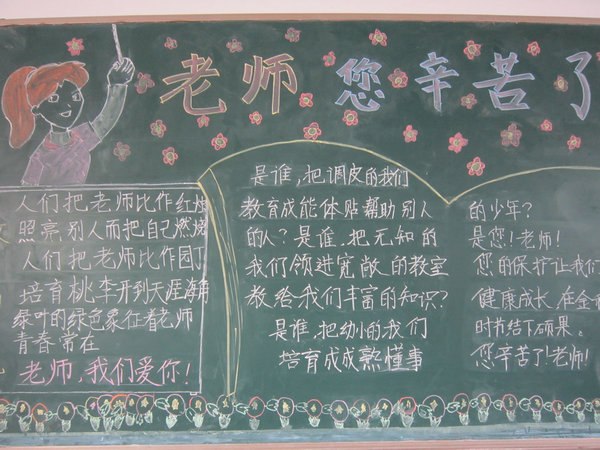 老师 您辛苦了
人们把老师比作红烛
照亮别人而把自己燃烧
人们把老师比作园丁
培育桃李开到天涯海角
绿叶的绿色象征着老师
青春常在
老师,我们爱你!
是谁,把调皮的我们
教育成能体贴帮助别人
的人?是谁,把无知的
我们领进宽敞的教室
教给我们丰富的知识?
是谁,把幼小的我们
培育成成熟懂事
的少年?
是您!老师!
您的保护让我们
健康成长,在金
时节结下硕果。
您辛苦了!老师!